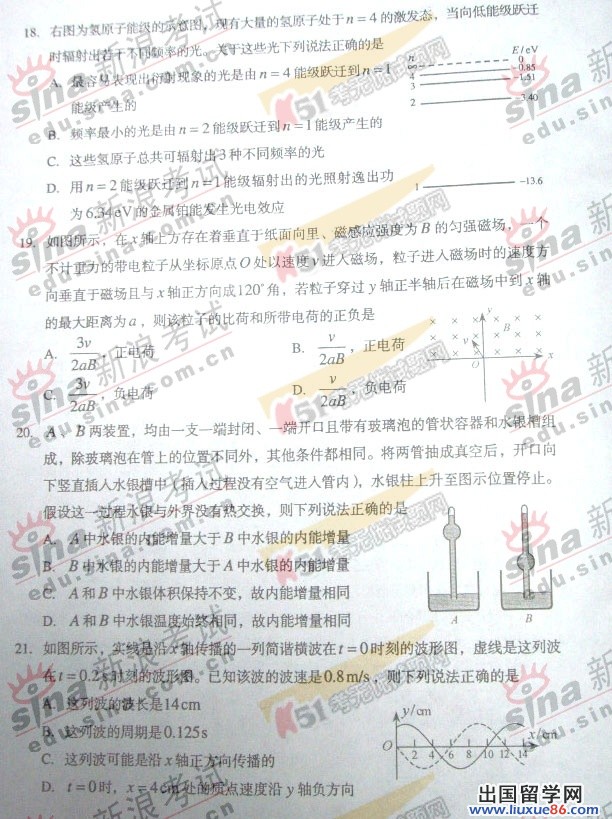 18. 右图为氢原子能级的示意图，现有大量的氢原子处于n＝4的激发态，当向低能级跃迁
时辐射出若干不同频率的光。关于这些光下列说法正确的是
A. 最容易表现出衍射现象的光是由n＝4能级跃迁到n＝1
能级产生的
B. 频率最小的光是由n＝2能级跃迁到n＝1能级产生的
C. 这些氢原子总共可辐射出3种不同频率的光
D. 用n＝2能级跃迁到n＝1能级辐射出的光照射逸出功
为6.34eV的金属铂能发生光电效应
n E/eV
∞ 0
4 -0.85
3 -1.51
2 -3.40
1 -13.6
19. 如图所示，在x轴上方存在着垂直于纸面向里、磁感应强度为B的匀强磁场，一个
不计重力的带电粒子从坐标原点O处以速度v进入磁场，粒子进入磁场时的速度方
向垂直于磁场且与x轴正方向成120°角，若粒子穿过y轴正半轴后在磁场中到x轴
的最大距离为a，则该粒子的比荷和所带电荷的正负是
A. 3v/2aB，正电荷 B. v/2aB，正电荷
C. 3v/2aB，负电荷 D. v/2aB，负电荷
y
B
v
O x
20. A、B两装置，均由一支一端封闭、一端开口且带有玻璃泡的管状容器和水银槽组
成，除玻璃泡在管上的位置不同外，其他条件都相同。将两管抽成真空后，开口向
下竖直插入水银槽中（插入过程没有空气进入管内），水银柱上升至图示位置停止。
假设这一过程水银与外界没有热交换，则下列说法正确的是
A. A中水银的内能增量大于B中水银的内能增量
B. B中水银的内能增量大于A中水银的内能增量
C. A和B中水银体积保持不变，故内能增量相同
D. A和B中水银温度始终相同，故内能增量相同
A B
21. 如图所示，实线是沿x轴传播的一列简谐横波在t＝0时刻的波形图，虚线是这列波
在t＝0.2s时刻的波形图。已知该波的波速是0.8m/s，则下列说法正确的是
A. 这列波的波长是14cm
B. 这列波的周期是0.125s
C. 这列波可能是沿x轴正方向传播的
D. t＝0时，x＝4cm处的质点速度沿y轴负方向
y/cm
x/cm
O 2 4 6 8 10 12 14
sina 新浪考试
edu.sina.com.cn
K51考元试题网
出国留学网
www.liuxue86.com